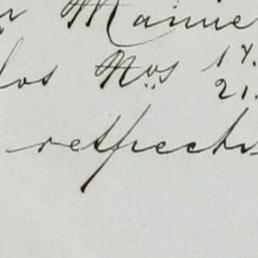 Manue
los Nos 17.
21.
respecti